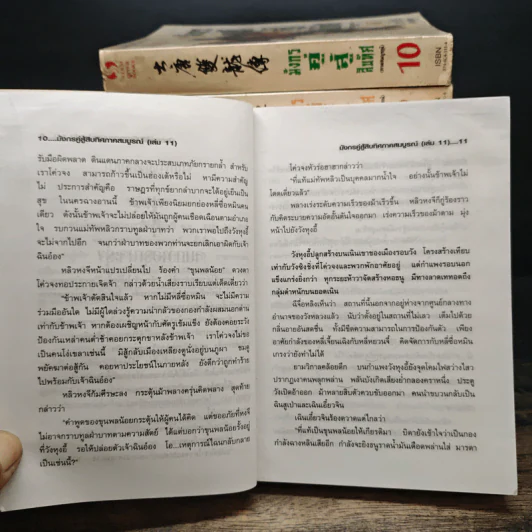 大唐雙龍傳
มังกรคู่สู้สิบทิศ
10
ISBN
10.....มังกรคู่สู้สิบทิศภาคสมบูรณ์ (เล่ม 11)
รับมือผิดพลาด ดินแดนภาคกลางจะประสบเภทภัยกรายกล้ำ สำหรับ
เราโค่วจง สามารถก้าวขึ้นเป็นฮ่องเต้หรือไม่ หามีความสำคัญ
ไม่ ประการสำคัญคือ ราษฎรที่ทุกข์ยากลำบากจะได้อยู่เย็นเป็น
สุข ในครรลองสายตานี้ ข้าพเจ้าเพียงนิยมยกย่องหลี่ซื่อหมินคน
เดียว ดังนั้นข้าพเจ้าจะไม่ปล่อยให้มันถูกผู้คนเชือดเฉือนตามอำเภอ
ใจ รบกวนแม่ทัพหลิวกราบทูลฝ่าบาทว่า พวกเราพอไปถึงวังหุงอี้
จะไม่จากไปอีก จนกว่าฝ่าบาทของพวกท่านจะยกเลิกเอาผิดกับเจ้า
ฉินอ๋อง"
หลิวหงจีหน้าแปรเปลี่ยนไป ร้องคำ "ขุนพลน้อย" ดวงตา
โค่วจงทอประกายเจิดจ้า กล่าวด้วยน้ำเสียงราบเรียบแต่เด็ดเดี่ยวว่า
"ข้าพเจ้าตัดสินใจแล้ว หากไม่มีหลี่ซื่อหมิน จะไม่มีความ
ร่วมมืออันใด ไม่มีผู้ใดล่วงรู้ความน่ากลัวของกองกำลังผสมนอกด่าน
เท่ากับข้าพเจ้า หากต้องเผชิญหน้ากับศัตรูเข้มแข็ง ยังต้องคอยระวัง
ป้องกันเหล่าคนต่ำช้าคอยกระตุกขาหลังข้าพเจ้า เราโค่วจงไม่ใช่
เป็นคนโง่เขลาเช่นนี้ มิสู้กลับเมืองเหลียงตูนั่งอยู่บนภูผา ชมดู
พยัคฆาต่อสู้กัน คอยหาประโยชน์ในภายหลัง ยังดีกว่าถูกทำร้าย
ไปพร้อมกับเจ้าฉินอ๋อง"
หลิวหงจีก้มศีรษะลง กระตุ้นม้าพลางครุ่นคิดพลาง สุดท้าย
กล่าวว่า
"คำพูดของขุนพลน้อยกระตุ้นให้ผู้คนได้คิด แต่ขออภัยที่หงจี
ไม่อาจกราบทูลฝ่าบาทตามความสัตย์ ได้แต่บอกว่าขุนพลน้อยรั้งอยู่
ที่วังหุงอี้ รอให้ปล่อยตัวเจ้าฉินอ๋อง โอ...เหตุการณ์ไฉนกลับกลาย
เป็นเช่นนี้?"
มังกรคู่สู้สิบทิศภาคสมบูรณ์ (เล่ม 11).....11
โค่วจงหัวร่อฮาฮากล่าวว่า
"ที่แท้แม่ทัพหลิวเป็นบุคคลมากน้ำใจ อย่างนั้นข้าพเจ้าไม่
โดดเดี่ยวแล้ว"
พลางเร่งระดับความเร็วม้าเร็วขึ้น หลิวหงจีก็กู่ร้องราว
กับคิดระบายความอัดอั้นตันใจออกมา เร่งความเร็วของม้าตาม มุ่ง
หน้าไปยังวังหุงอี้
วังหุงอี้ปลูกสร้างบนเนินเขาของเมืองรอบวัง โครงสร้างเทียบ
เท่ากับวังซิงซิ่งที่โค่วจงและพวกพักอาศัยอยู่ แต่กำแพงรอบนอก
แข็งแกร่งยิ่งกว่า ทุกระยะห้าวาจัดสร้างหอธนู มีทางลาดเททอดถึง
กลุ่มตำหนักบนยอดเนิน
ฉีจื่อหลิงเห็นว่า สถานที่นี้นอกจากอยู่ห่างจากศูนย์กลางทาง
อำนาจของวังหลวงแล้ว นับว่าตั้งอยู่ในสถานที่ไม่เลว เต็มไปด้วย
กลิ่นอายอันสดชื่น ทั้งมีขีดความสามารถในการป้องกันตัว เพียง
อาศัยกำลังของหลี่เจี้ยนเฉิงกับหลี่หยวนจี๋ คิดจัดการกับหลี่ซื่อหมิน
เกรงว่ายังทำไม่ได้
ยามวิกาลคล้อยดึก บนกำแพงวังหุงอี้ยังจุดโคมไฟสว่างไสว
ปรากฏเงาคนพลุกพล่าน พลันบังเกิดเสียงย่ำกลองคราหนึ่ง ประตู
วังเปิดอ้าออก ม้าหลายสิบตัวควบขับออกมา คนนำขบวนกลับเป็น
ฉินสูเป่าและเฉินเยี่ยวจิน
เฉินเยี่ยวจินร้องกวาดแต่ไกลว่า
"ที่แท้เป็นขุนพลน้อยให้เกียรติมา บิดายังเข้าใจว่าเป็นกอง
กำลังฉางหลินเสียอีก กำลังจะยิงธนูราดน้ำมันเดือดพล่านใส่ มารดา